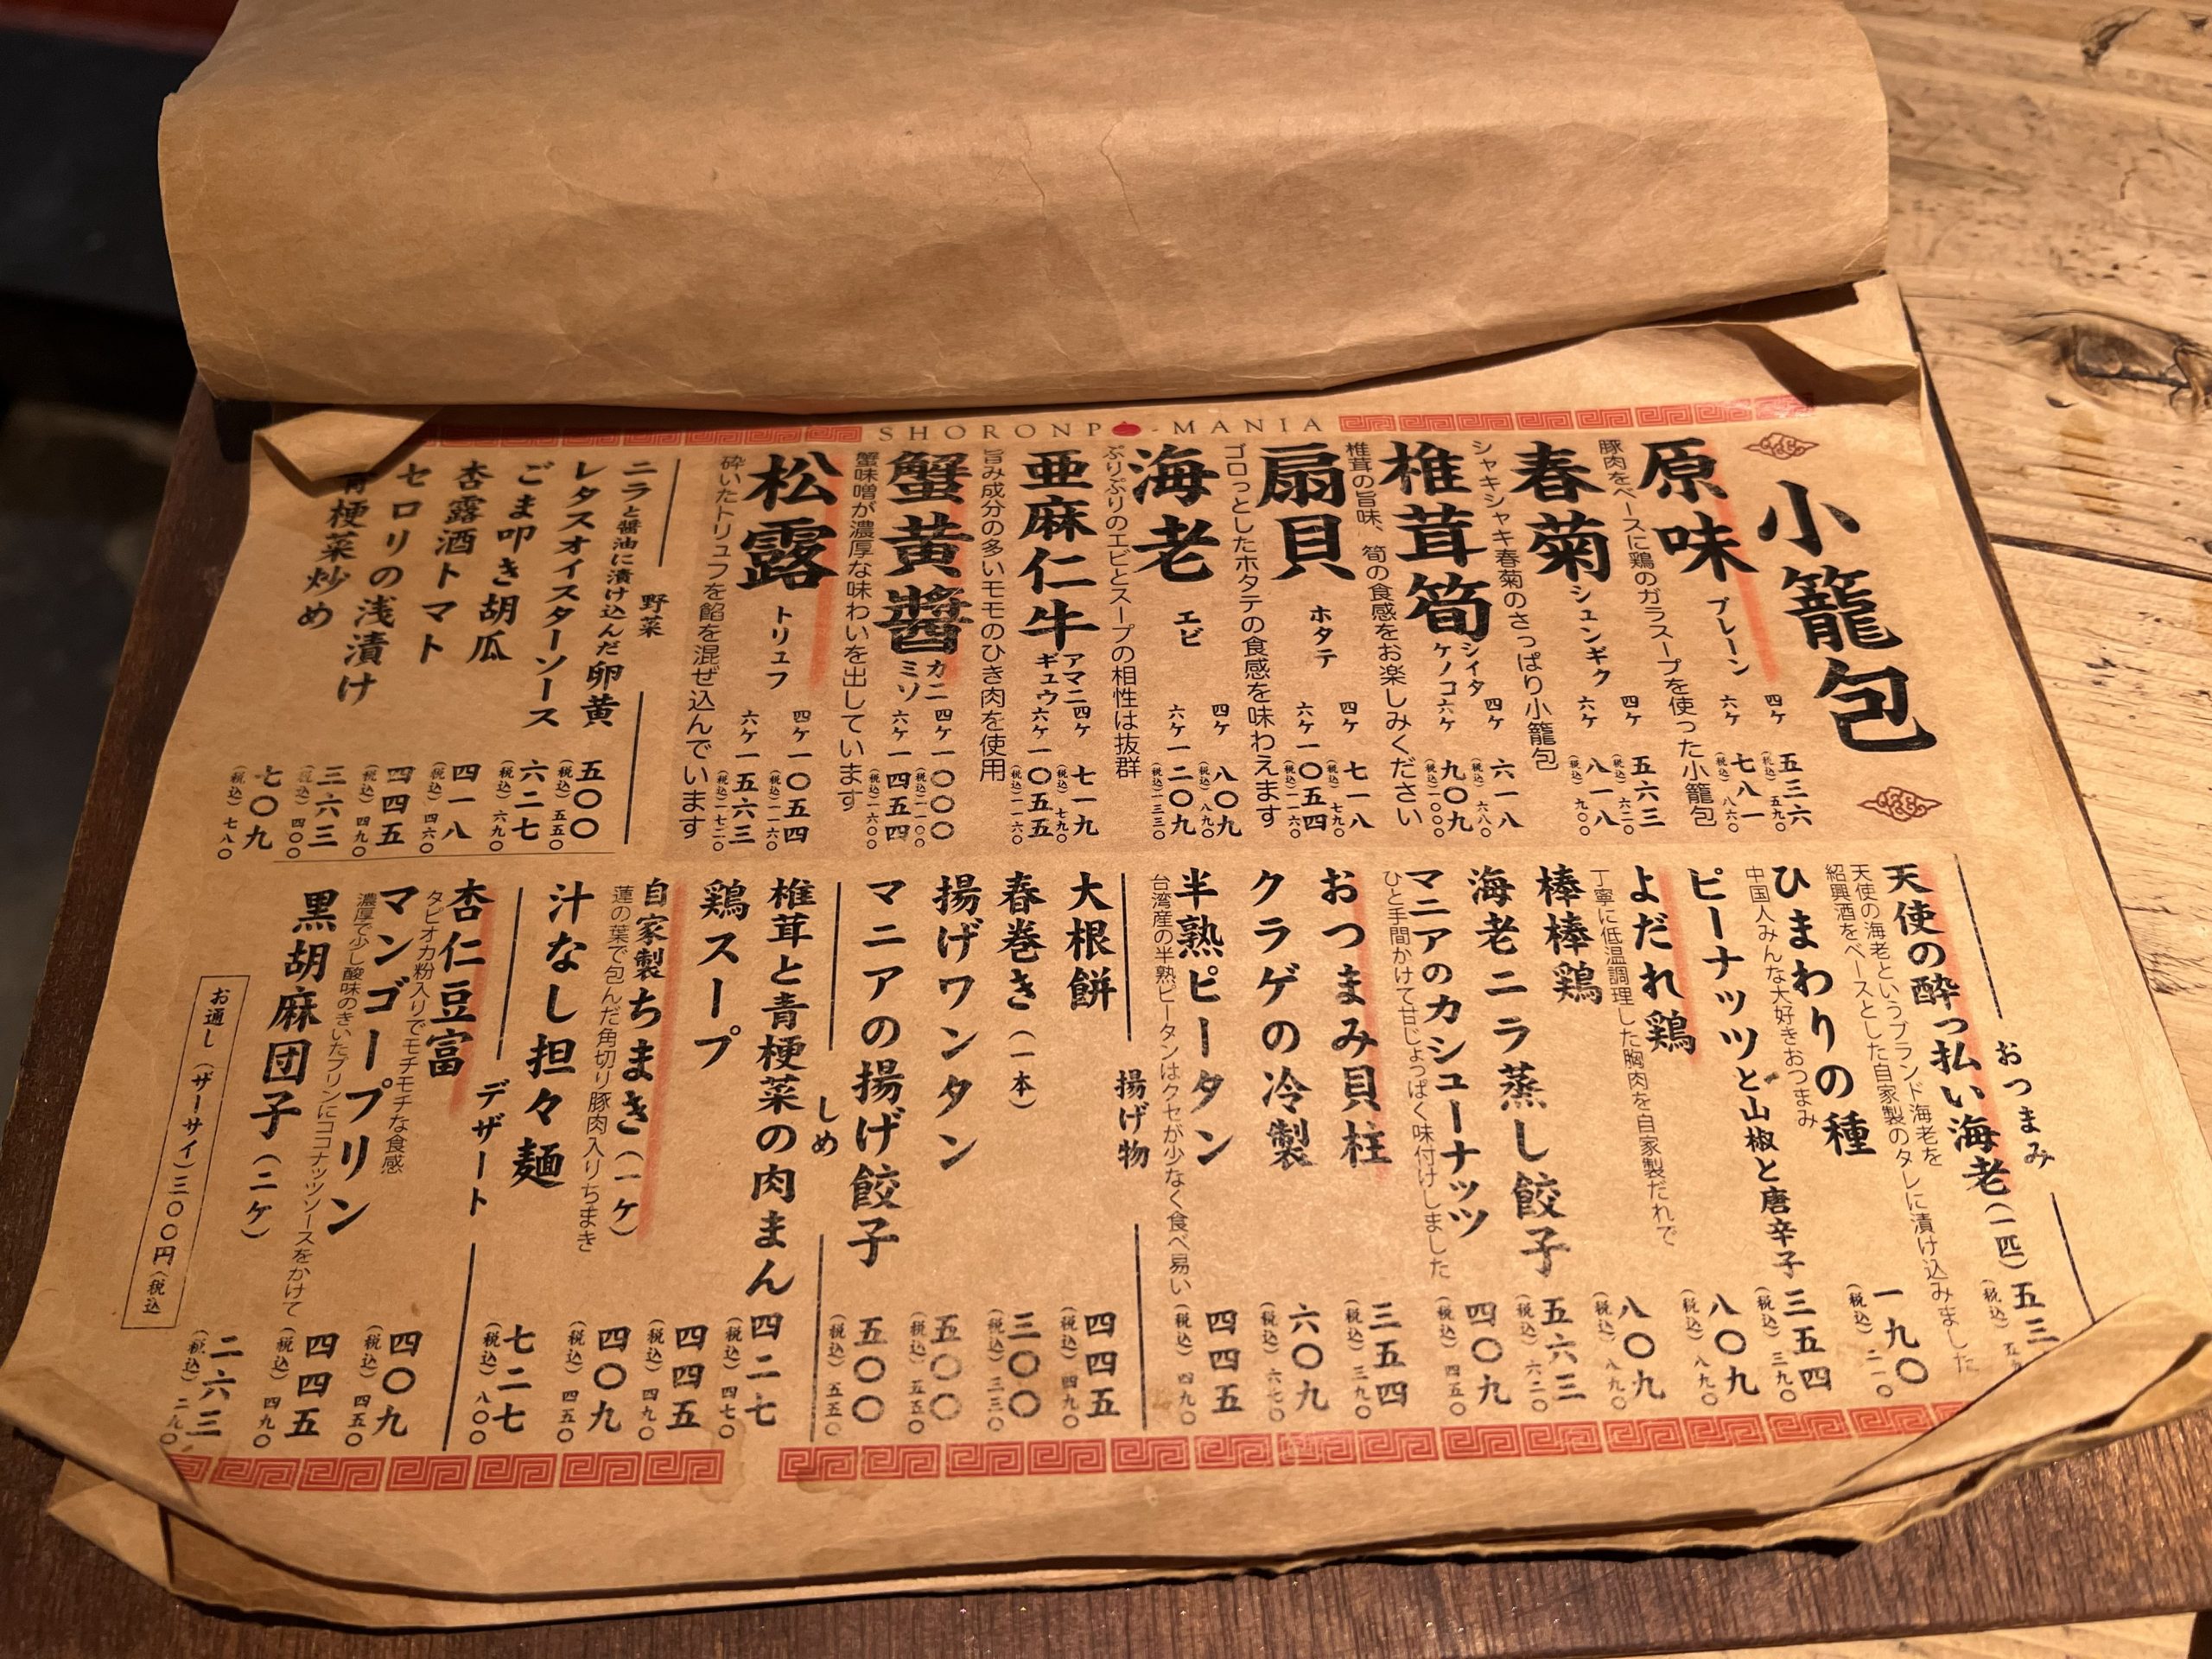 SHORONPO-MANIA
小籠包
原味 プレーン
四ケ 五三六 (税込)五九〇
六ケ 七八一 (税込)八六〇
豚肉をベースに鶏のガラスープを使った小籠包
春菊 シュンギク
四ケ 五六三 (税込)六二〇
六ケ 八一八 (税込)九〇〇
シャキシャキ春菊のさっぱり小籠包
椎茸筍 シイタケノコ
四ケ 六一八 (税込)六八〇
六ケ 九〇九 (税込)一〇〇〇
椎茸の旨味、筍の食感をお楽しみください
扇貝 ホタテ
四ケ 七一八 (税込)七九〇
六ケ 一〇五四 (税込)一一六〇
ゴロっとしたホタテの食感を味わえます
海老 エビ
四ケ 八〇九 (税込)八九〇
六ケ 一二〇九 (税込)一三三〇
ぷりぷりのエビとスープの相性は抜群
亜麻仁牛 アマニギュウ
四ケ 七一九 (税込)七九〇
六ケ 一〇五五 (税込)一一六〇
旨み成分の多いモモのひき肉を使用
蟹黄醬 カニミソ
四ケ 一〇〇〇 (税込)一一〇〇
六ケ 一四五四 (税込)一六〇〇
蟹味噌が濃厚な味わいを出しています
松露 トリュフ
四ケ 一〇五四 (税込)一一六〇
六ケ 一五六三 (税込)一七二〇
砕いたトリュフを餡を混ぜ込んでいます
野菜
ニラと醤油に漬け込んだ卵黄 五〇〇 (税込)五五〇
レタスオイスターソース 六二七 (税込)六九〇
ごま叩き胡瓜 四一八 (税込)四六〇
杏露酒トマト 四四五 (税込)四九〇
セロリの浅漬け 三六三 (税込)四〇〇
青梗菜炒め 七〇九 (税込)七八〇
おつまみ
天使の酔っ払い海老(一匹) 五三
天使の海老というブランド海老を
紹興酒をベースとした自家製のタレに漬け込みました
ひまわりの種 一九〇 (税込)二一〇
中国人みんな大好きおつまみ
ピーナッツと山椒と唐辛子 三五四 (税込)三九〇
よだれ鶏 八〇九 (税込)八九〇
丁寧に低温調理した胸肉を自家製だれで
棒棒鶏 八〇九 (税込)八九〇
海老ニラ蒸し餃子 五六三 (税込)六二〇
マニアのカシューナッツ 四〇九 (税込)四五〇
ひと手間かけて甘じょっぱく味付けしました
おつまみ貝柱 三五四 (税込)三九〇
クラゲの冷製 六〇九 (税込)六七〇
半熟ピータン 四四五 (税込)四九〇
台湾産の半熟ピータンはクセが少なく食べ易い
揚げ物
大根餅 四四五 (税込)四九〇
春巻き(一本) 三〇〇 (税込)三三〇
揚げワンタン 五〇〇 (税込)五五〇
マニアの揚げ餃子 五〇〇 (税込)五五〇
しめ
椎茸と青梗菜の肉まん 四二七 (税込)四七〇
鶏スープ 四四五 (税込)四九〇
自家製ちまき(一ケ) 四〇九 (税込)四五〇
蓮の葉で包んだ角切り豚肉入りちまき
汁なし担々麺 七二七 (税込)八〇〇
デザート
杏仁豆富 四〇九 (税込)四五〇
タピオカ粉入りでモチモチな食感
マンゴープリン 四四五 (税込)四九〇
濃厚で少し酸味のきいたプリンにココナッツソースをかけて
黒胡麻団子(二ケ) 二六三 (税込)二九〇
お通し(ザーサイ)三〇〇円(税込